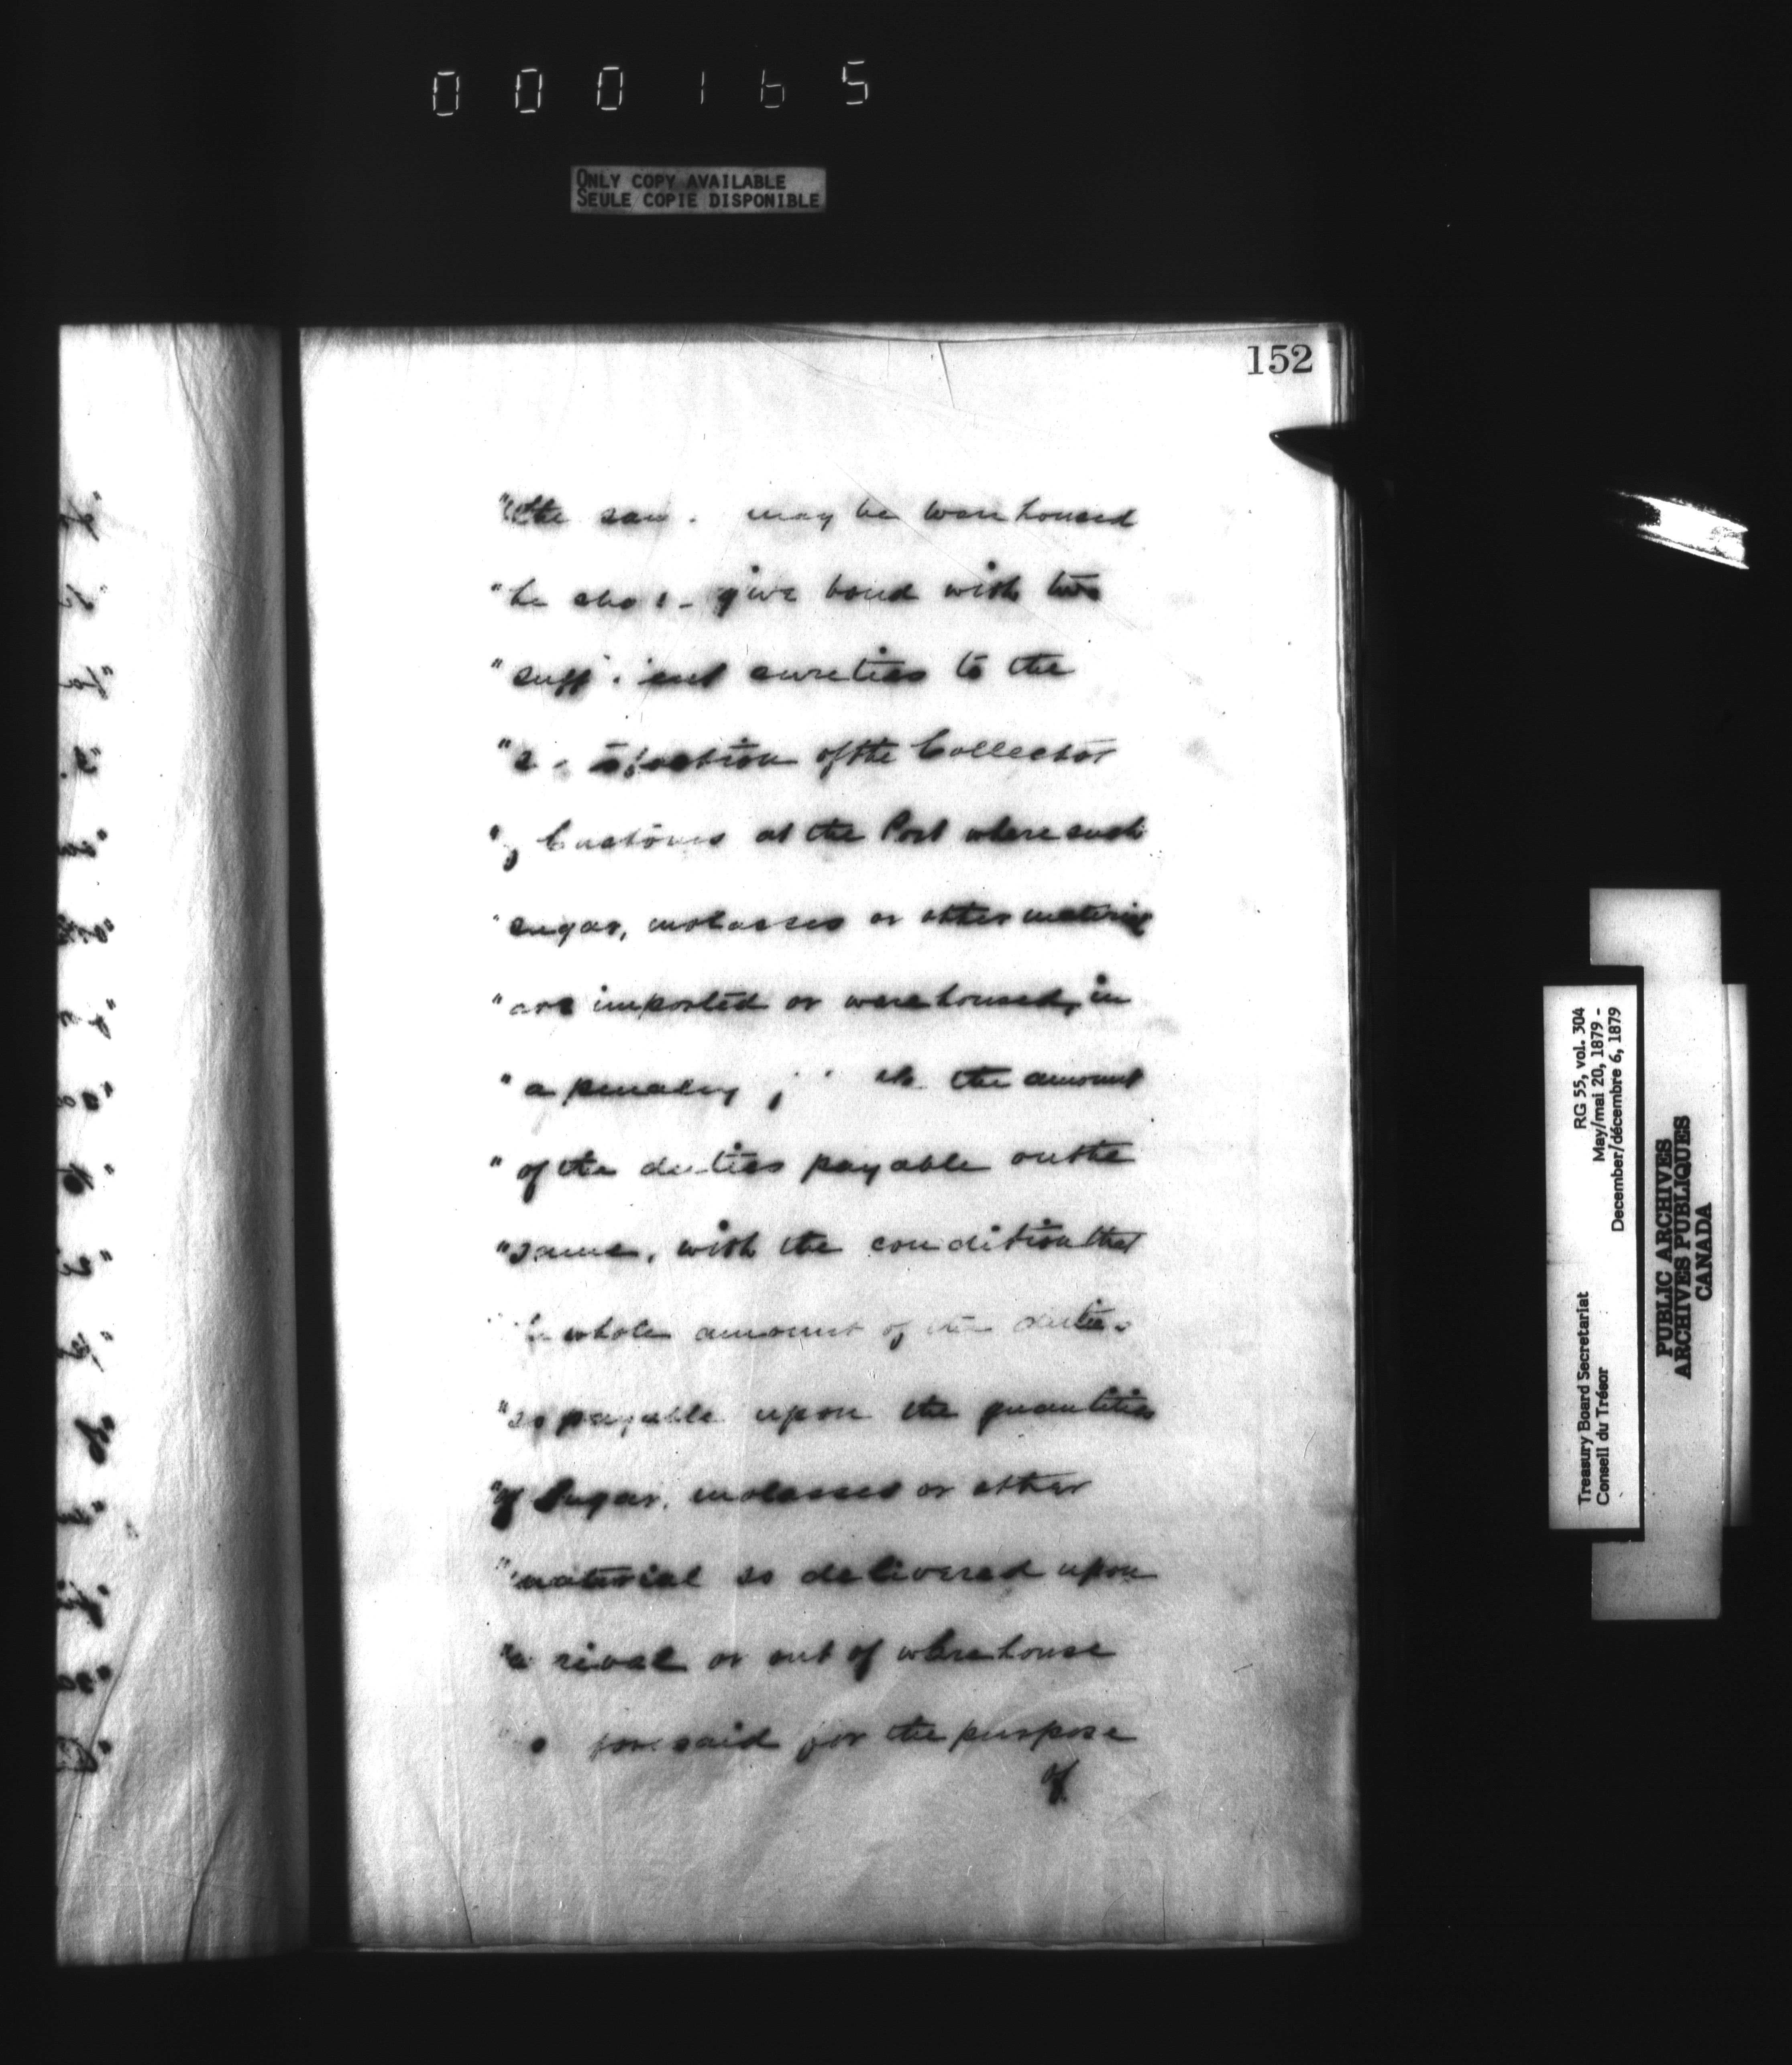 000165
ONLY COPY AVAILABLE
SEULE COPIE DISPONIBLE
152
"the same may be warehoused
"he shall give bond with two
"sufficient sureties to the
"satisfaction of the Collector
"of Customs at the Port where such
"sugar, molasses or other material
"are imported or warehoused, in
"a penalty the amount
"of the duties payable on the
"same, with the condition that
"the whole amount of the duties
"so payable upon the quantities
"of Sugar, molasses or other
"material so delivered upon
"arrival or out of warehouse
"aforesaid for the purpose
of
RG 55, vol. 304
May/mai 20, 1879 -
December/décembre 6, 1879
Treasury Board Secretariat
Conseil du Trésor
PUBLIC ARCHIVES
ARCHIVES PUBLIQUES
CANADA